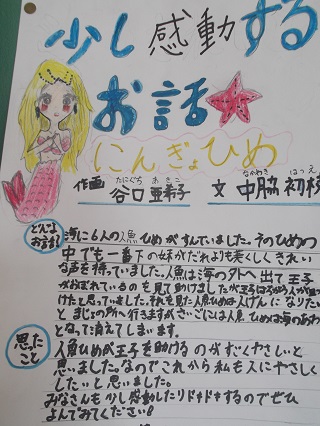 少し感動する
お話
にんぎょひめ
作画 谷口亜希子 文 中脇初枝
たにぐち あきこ なかわき はつえ
どんなお話し
海に6人の人魚ひめがすんでいました。そのひめの
中でも一番下の妹がだれよりも美しくきれい
な声を持っていました。人魚は海の外へ出て王子
がおぼれているのを見て助けましたが王子はちがう人が助
けたと思っていました。それを見た人魚ひめは人げんになりたい
とまじょの所へ行きますがさいごには人魚ひめは海のあわ
となって消えてしまいます。
思たこと
人魚ひめが王子を助けるのがすごくやさしいと
思いました。なのでこれから私も人にやさしく
したいと思いました。
みなさんも少し感動したりドキドキするのでぜひ
よんでみてください!